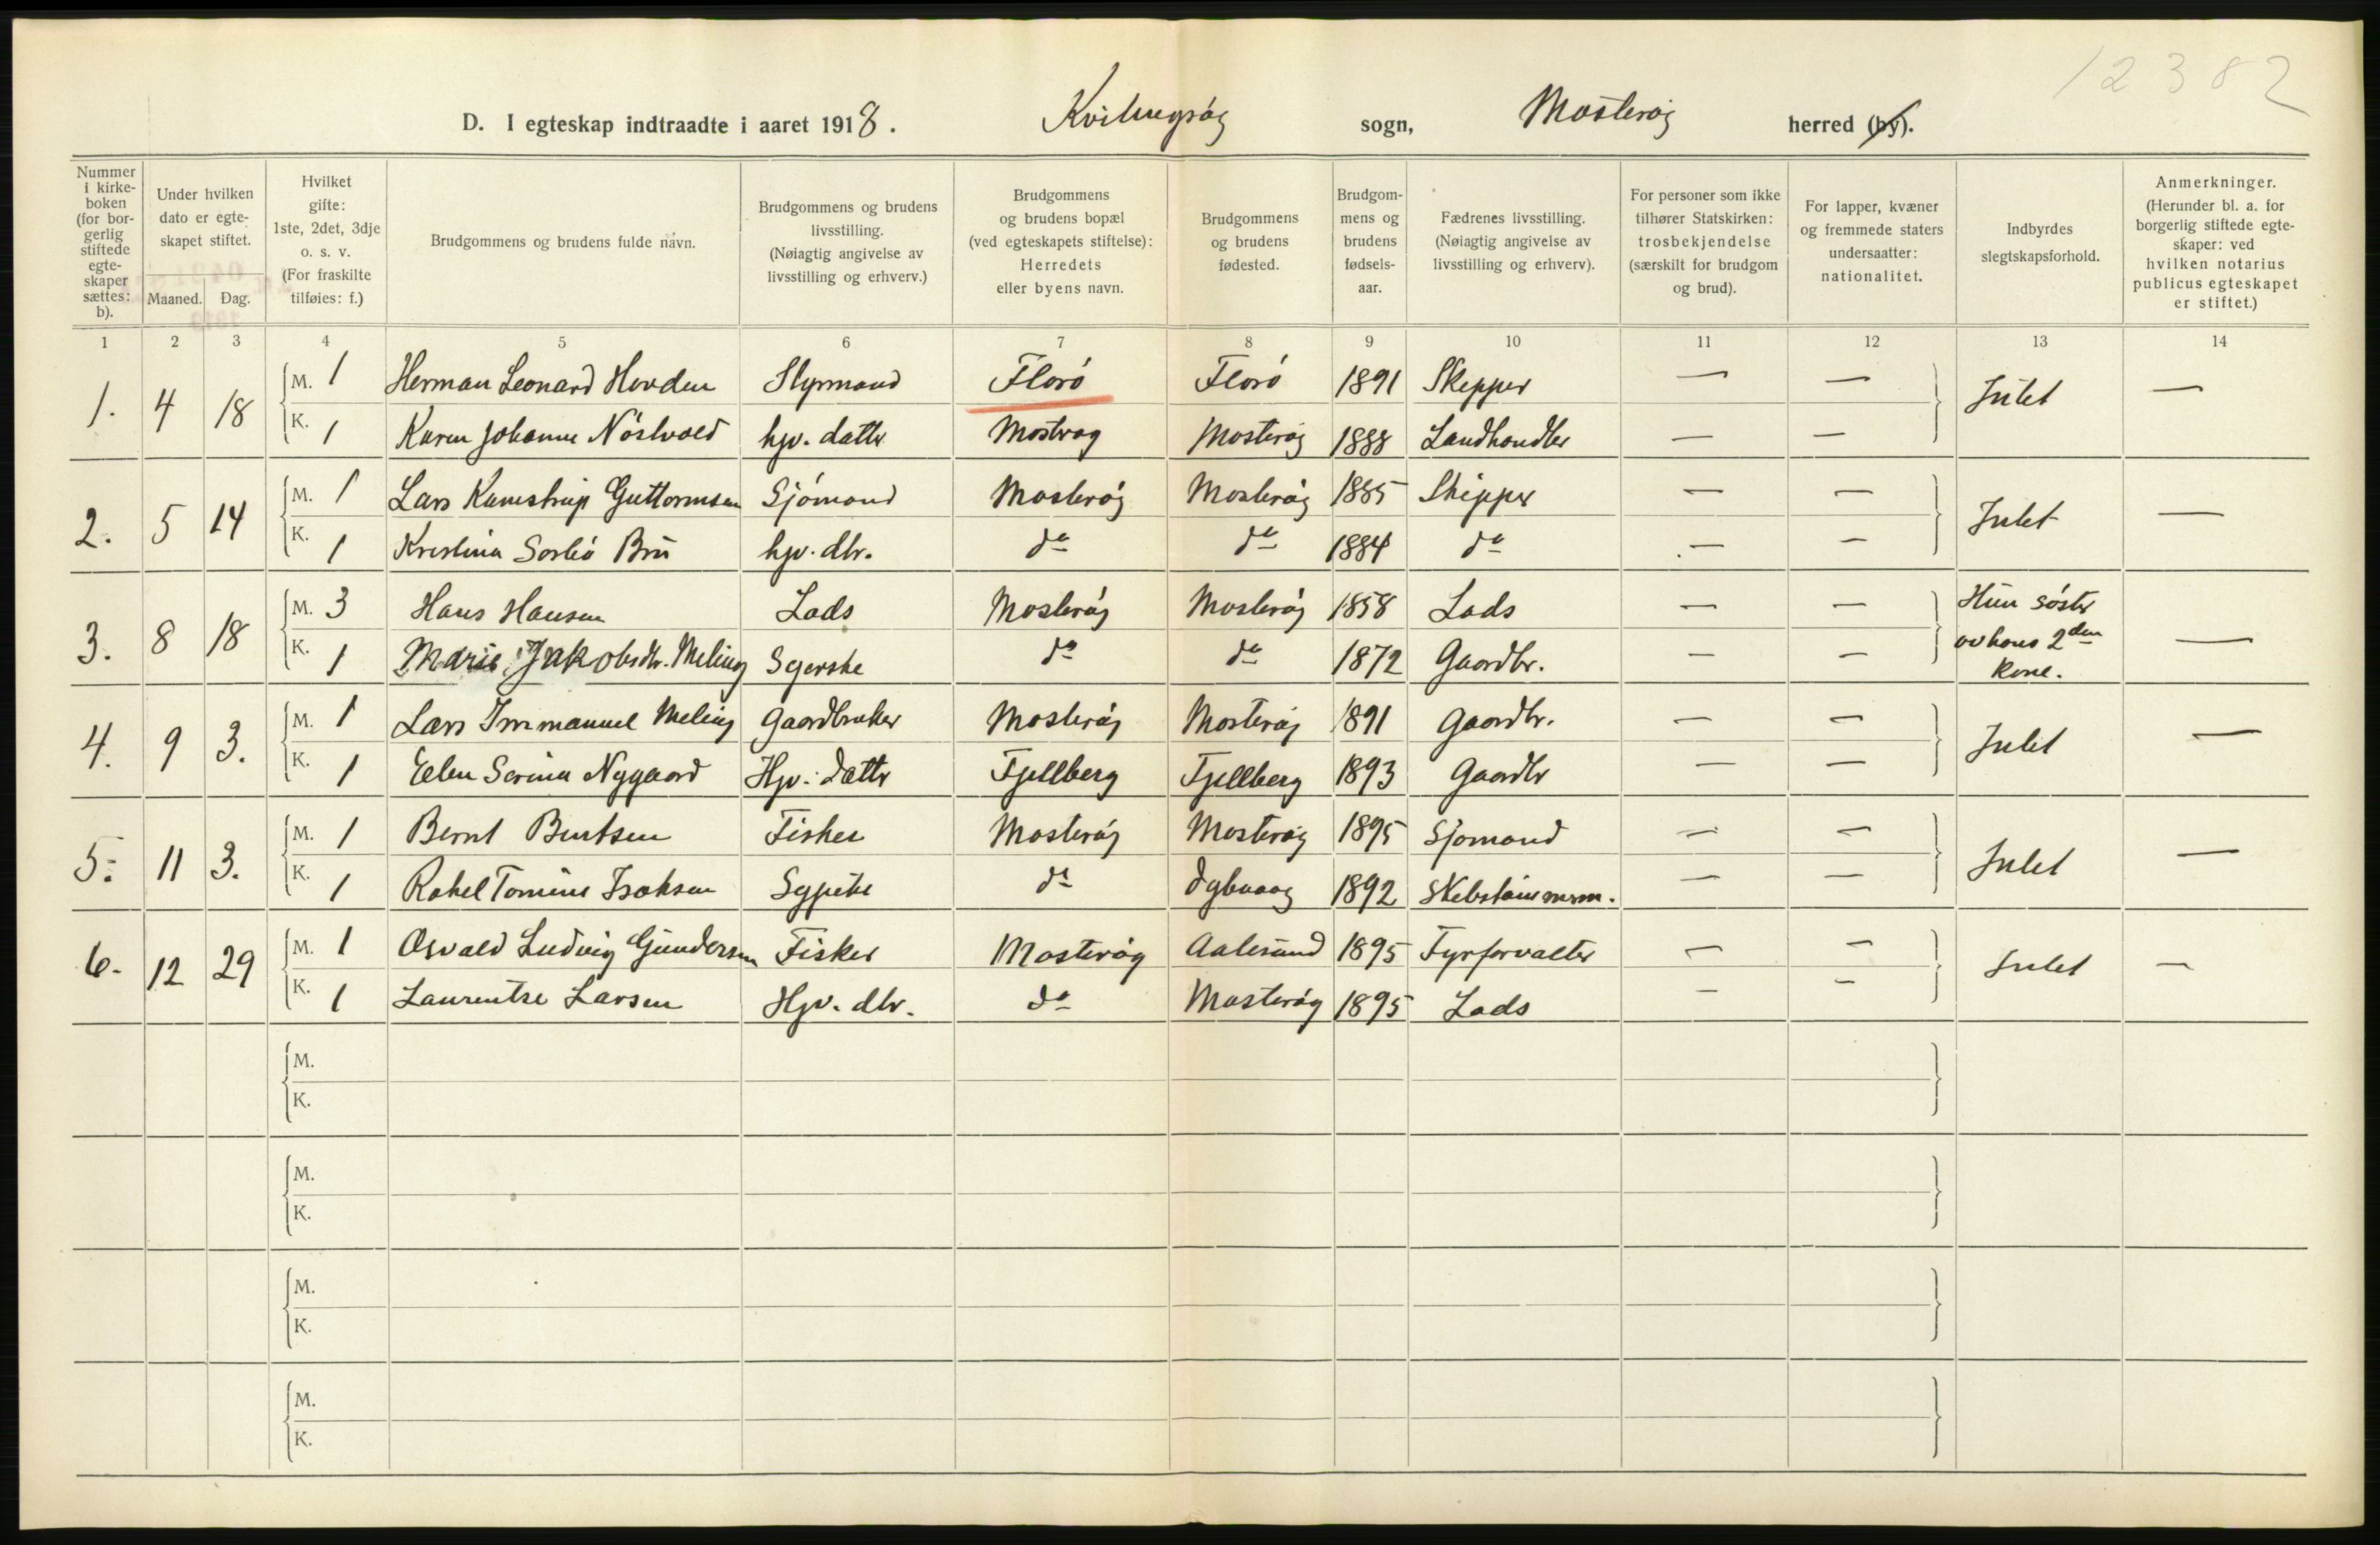 12382
D. I egteskap indtraadte i aaret 1918. Kvitingsøy sogn, Mosterøy herred (by).
Nummer i kirkeboken (for borgerlig stiftede egteskaper sættes: b).
Under hvilken dato er egteskapet stiftet.
Maaned. Dag.
Hvilket gifte: 1ste, 2det, 3dje o. s. v. (For fraskilte tilføies: f.)
Brudgommens og brudens fulde navn.
Brudgommens og brudens livsstilling. (Nøiagtig angivelse av livsstilling og erhverv.)
Brudgommens og brudens bopæl (ved egteskapets stiftelse): Herredets eller byens navn.
Brudgommens og brudens fødested.
Brudgommens og brudens fødselsaar.
Fædrenes livsstilling. (Nøiagtig angivelse av livsstilling og erhverv).
For personer som ikke tilhører Statskirken: trosbekjendelse (særskilt for brudgom og brud).
For lapper, kvæner og fremmede staters undersaatter: nationalitet.
Indbyrdes slegtskapsforhold.
Anmerkninger. (Herunder bl. a. for borgerlig stiftede egteskaper: ved hvilken notarius publicus egteskapet er stiftet.)
1 2 3 4 5 6 7 8 9 10 11 12 13 14
1. 4 18 M. 1 Herman Leonard Hovden Styrmand Florö Florö 1891 Skipper — — Intet —
K. 1 Karen Johanne Nöstvold hjv. datter Mosterøy Mosterøy 1888 Landhandler — —
2. 5 14 M. 1 Lars Kamstrup Guttormsen Sjömand Mosterøy Mosterøy 1885 Skipper — — Intet —
K. 1 Kristina Sorbö Bru hjv. dtr. do do 1884 do — —
3. 8 18 M. 3 Hans Hansen Lods Mosterøy Mosterøy 1858 Lods — — Hun søster av hans 2den kone. —
K. 1 Marie Jakobsdtr. Meling Syerske do do 1872 Gaardbr. — —
4. 9 3. M. 1 Lars Immanuel Meling Gaardbruker Mosterøy Mosterøy 1891 Gaardbr. — — Intet —
K. 1 Elen Serina Nygaard Hjv. datter Fjellberg Fjellberg 1893 Gaardbr — —
5. 11 3. M. 1 Bernt Berntsen Fisker Mosterøy Mosterøy 1895 Sjömand — — Intet —
K. 1 Rakel Tomine Isaksen Sypike do Dybvaag 1892 Skibstömmerm. — —
6. 12 29 M. 1 Osvald Ludvig Gundersen Fisker Mosterøy Aalesund 1895 Fyrforvalter — — Intet —
K. 1 Laurentse Larsen Hjv. dtr. do Mosterøy 1895 Lods — —
M.
K.
M.
K.
M.
K.
M.
K.